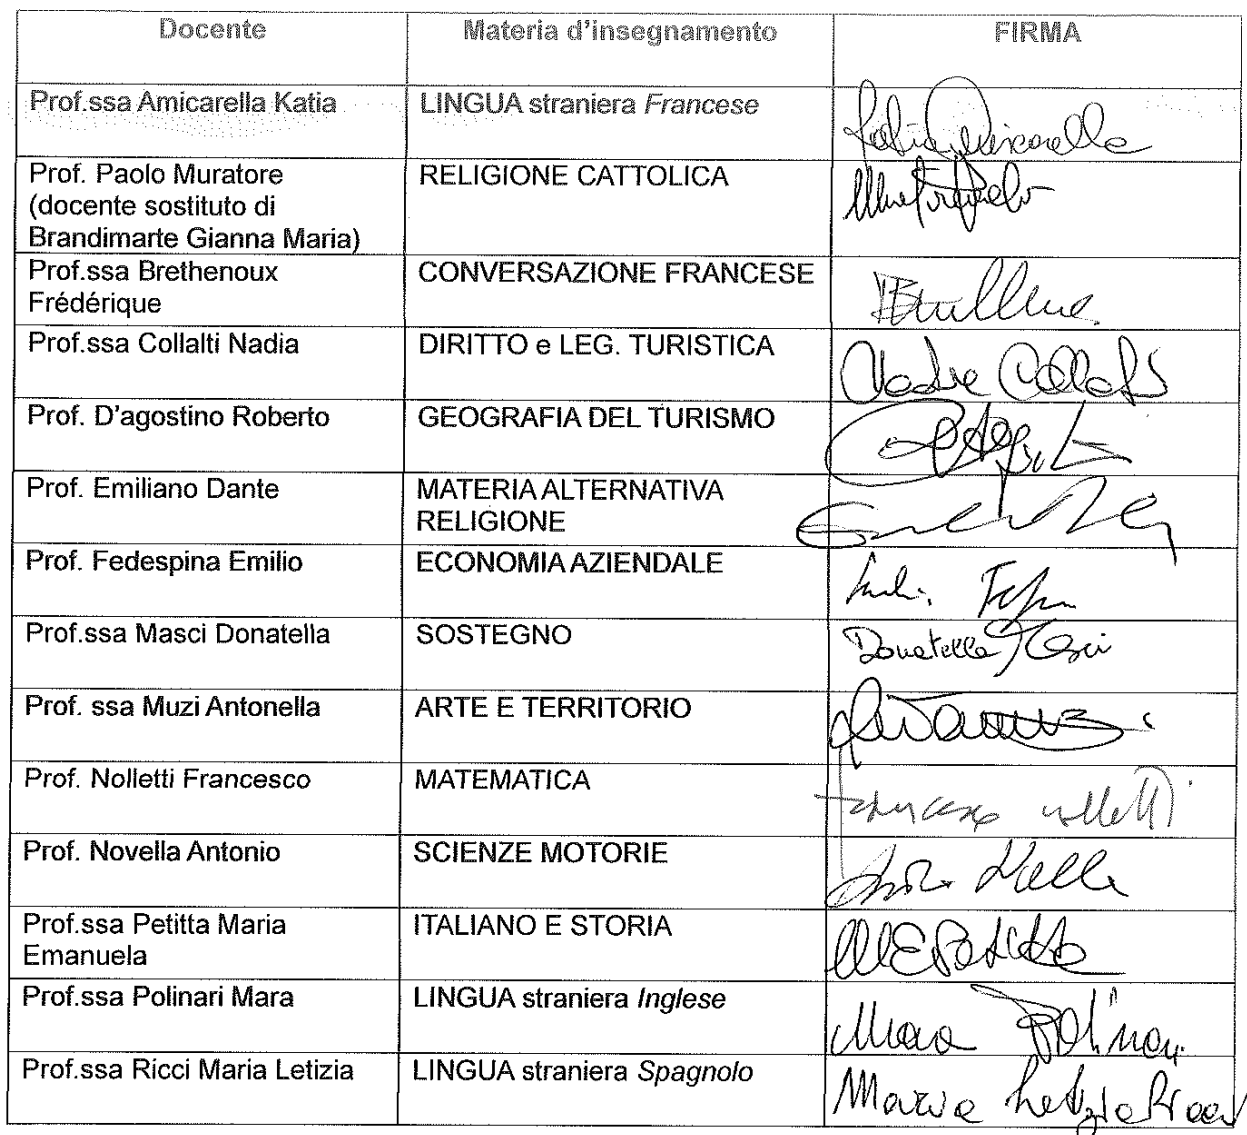 Docente Materia d'insegnamento FIRMA
Prof.ssa Amicarella Katia LINGUA straniera Francese Katia Amicarella
Prof. Paolo Muratore RELIGIONE CATTOLICA
(docente sostituto di
Brandimarte Gianna Maria)
Prof.ssa Brethenoux CONVERSAZIONE FRANCESE
Frédérique
Prof.ssa Collalti Nadia DIRITTO e LEG. TURISTICA Nadia Collalti
Prof. D'agostino Roberto GEOGRAFIA DEL TURISMO
Prof. Emiliano Dante MATERIA ALTERNATIVA
RELIGIONE
Prof. Fedespina Emilio ECONOMIA AZIENDALE
Prof.ssa Masci Donatella SOSTEGNO Donatella Masci
Prof. ssa Muzi Antonella ARTE E TERRITORIO
Prof. Nolletti Francesco MATEMATICA Francesco Nolletti
Prof. Novella Antonio SCIENZE MOTORIE
Prof.ssa Petitta Maria ITALIANO E STORIA
Emanuela
Prof.ssa Polinari Mara LINGUA straniera Inglese Mara Polinari
Prof.ssa Ricci Maria Letizia LINGUA straniera Spagnolo Maria Letizia Ricci